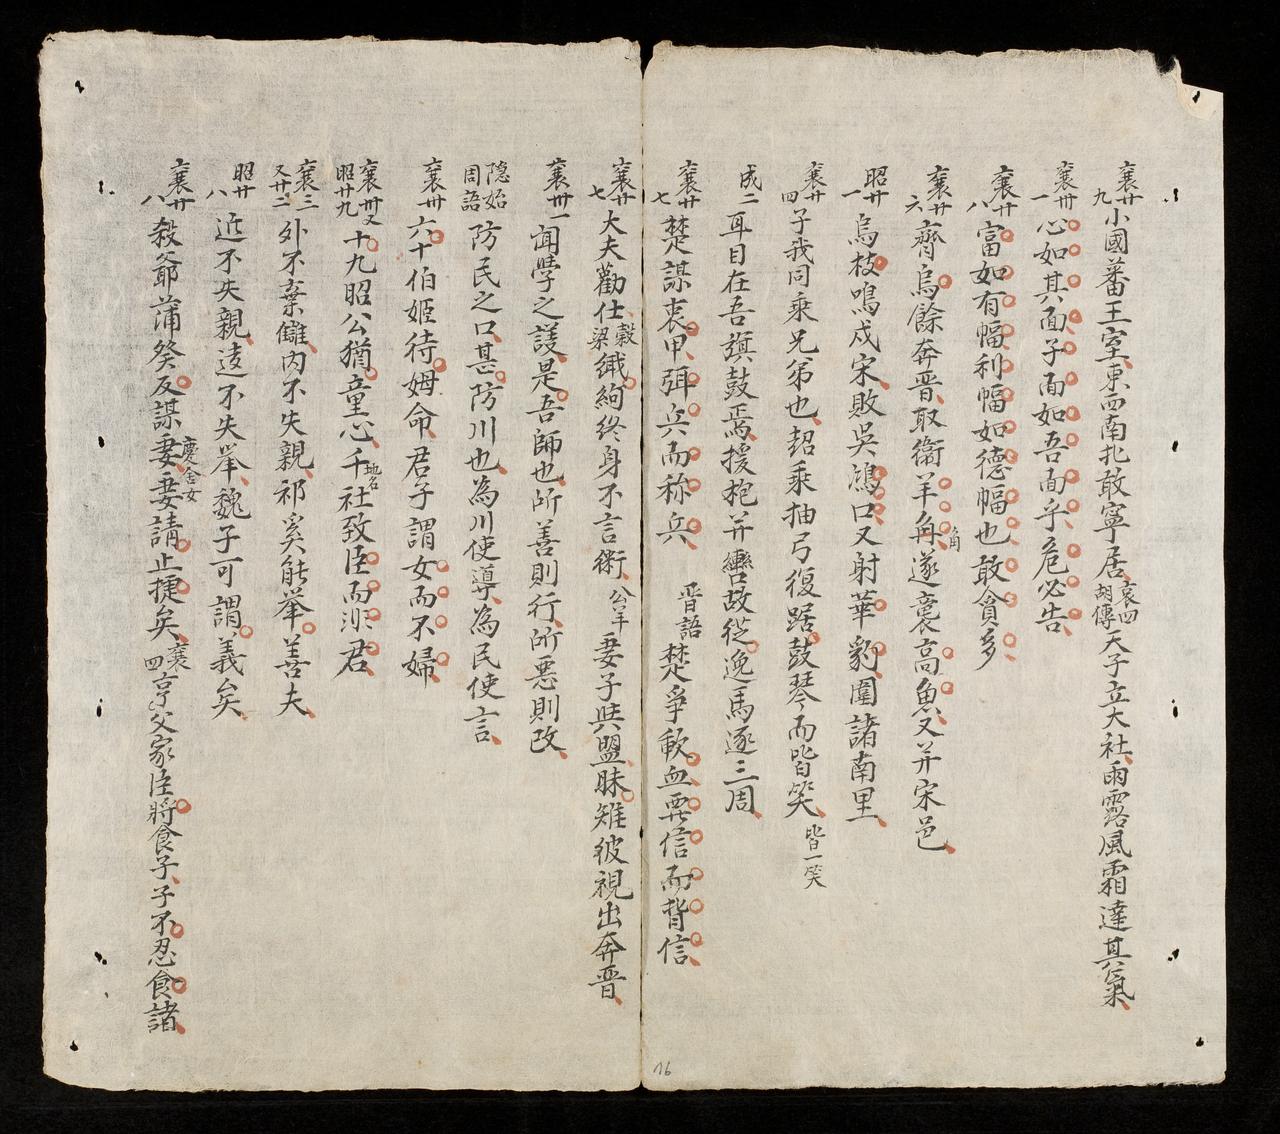 襄廿九小國蕃王室東西南北敢寧居哀四胡傳天子立大社雨露風霜達其氣
襄卅一心如其面子面如吾面乎危必告
襄廿八富如有幅利幅如德幅也敢貪多
襄廿六齊烏餘奔晉取衞羊角角遂襲高魚又并宋邑
昭廿一烏枝鳴戍宋敗吳鴻口又射華豹圍諸南里
襄廿四子我同乘兄弟也超乘抽弓復踞鼓琴而皆笑皆一笑
成二耳目在吾旗鼓焉援枹并轡故從逸馬逐三周
襄廿七楚謀衷甲弭兵而称兵 晋語楚爭歃血要信而背信
襄廿七大夫勸仕穀梁織絇終身不言衞公羊妻子與盟昧雉彼視出奔晉
襄卅一聞學之謀是吾師也所善則行所惡則改
隠始周語防民之口甚防川也為川使導為民使言
襄卅六十伯姬待姆命君子謂女而不婦
襄卅一又昭廿九十九昭公猶童心千地名社致臣而漇君
襄三又廿二外不棄雠内不失親祁奚能举善夫
昭廿八近不失親逺不失举魏子可謂義矣
襄廿八殺爺蒲癸反謀妻慶舍女妻請止捷矣襄四亨父家臣將食子子不忍食諸
16